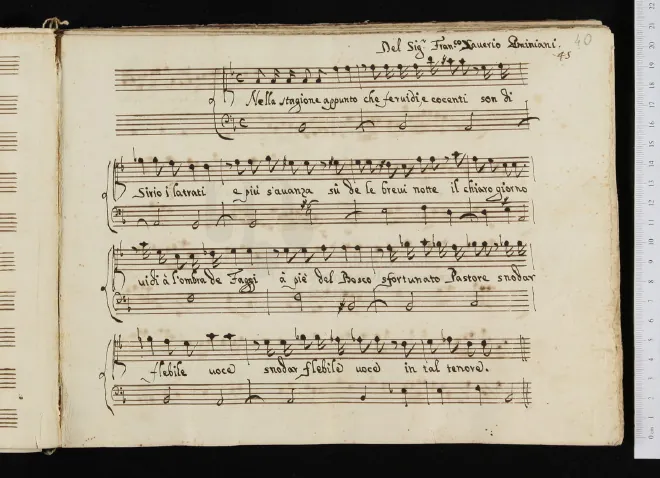 Del Sig.r Fran.co Xauerio Geminiani.
40
45
Nella stagione appunto che feruidi, e cocenti son di
Sirio i latrati e più s'auanza sù de le breui notte il chiaro giorno
uidi à l'ombra de Faggi à piè del Bosco sfortunato Pastore snodar
flebile uoce snodar flebile uoce in tal tenore.